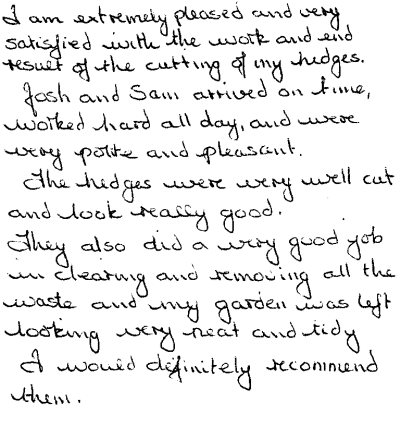 I am extremely pleased and very
satisfied with the work and end
result of the cutting of my hedges.
Josh and Sam arrived on time,
worked hard all day, and were
very polite and pleasant.
The hedges were very well cut
and look really good.
They also did a very good job
in clearing and removing all the
waste and my garden was left
looking very neat and tidy
I would definitely recommend
them.